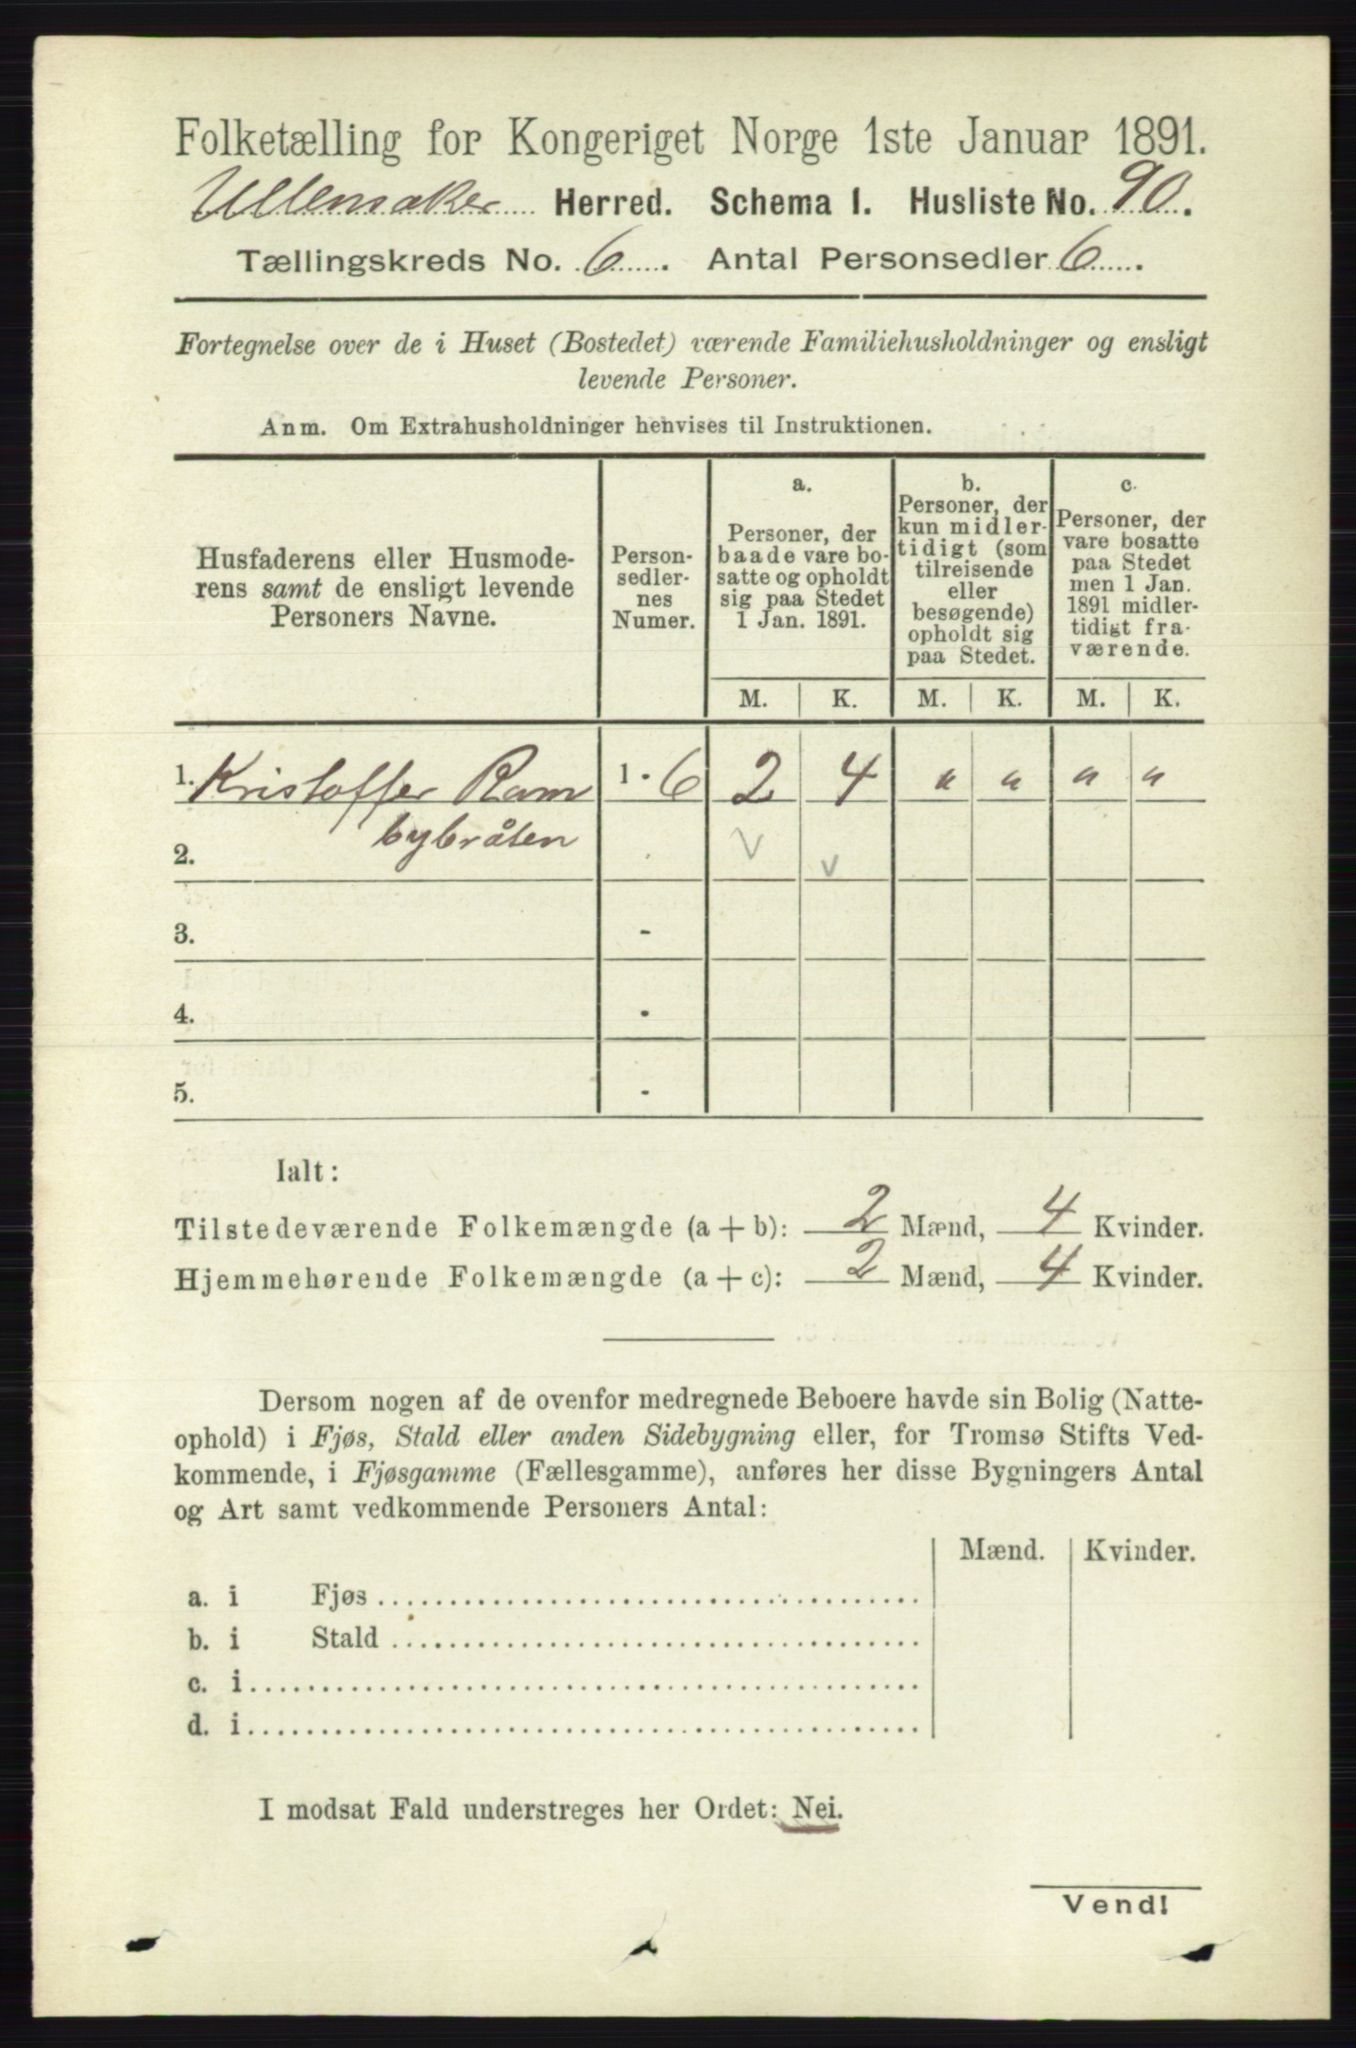 Folketælling for Kongeriget Norge 1ste Januar 1891.
Ullensaker Herred. Schema I. Husliste No. 90.
Tællingskreds No. 6. Antal Personsedler 6.
Fortegnelse over de i Huset (Bostedet) værende Familiehusholdninger og ensligt
levende Personer.
Anm. Om Extrahusholdninger henvises til Instruktionen.
Husfaderens eller Husmode-
rens samt de ensligt levende
Personers Navne.
Person-
sedler-
nes
Numer.
a.
Personer, der
baade vare bo-
satte og opholdt
sig paa Stedet
1 Jan. 1891.
b.
Personer, der
kun midler-
tidigt (som
tilreisende
eller
besøgende)
opholdt sig
paa Stedet.
c.
Personer, der
vare bosatte
paa Stedet
men 1 Jan.
1891 midler-
tidigt fra-
værende.
M. K. M. K. M. K.
1. Kristoffer Ram 1 - 6 2 4 " " " "
2. bybråten - v v
3. -
4. -
5. -
Ialt:
Tilstedeværende Folkemængde (a + b): 2 Mænd, 4 Kvinder.
Hjemmehørende Folkemængde (a + c): 2 Mænd, 4 Kvinder.
Dersom nogen af de ovenfor medregnede Beboere havde sin Bolig (Natte-
ophold) i Fjøs, Stald eller anden Sidebygning eller, for Tromsø Stifts Ved-
kommende, i Fjøsgamme (Fællesgamme), anføres her disse Bygningers Antal
og Art samt vedkommende Personers Antal:
Mænd. Kvinder.
a. i Fjøs
b. i Stald
c. i
d. i
I modsat Fald understreges her Ordet: Nei.
Vend!